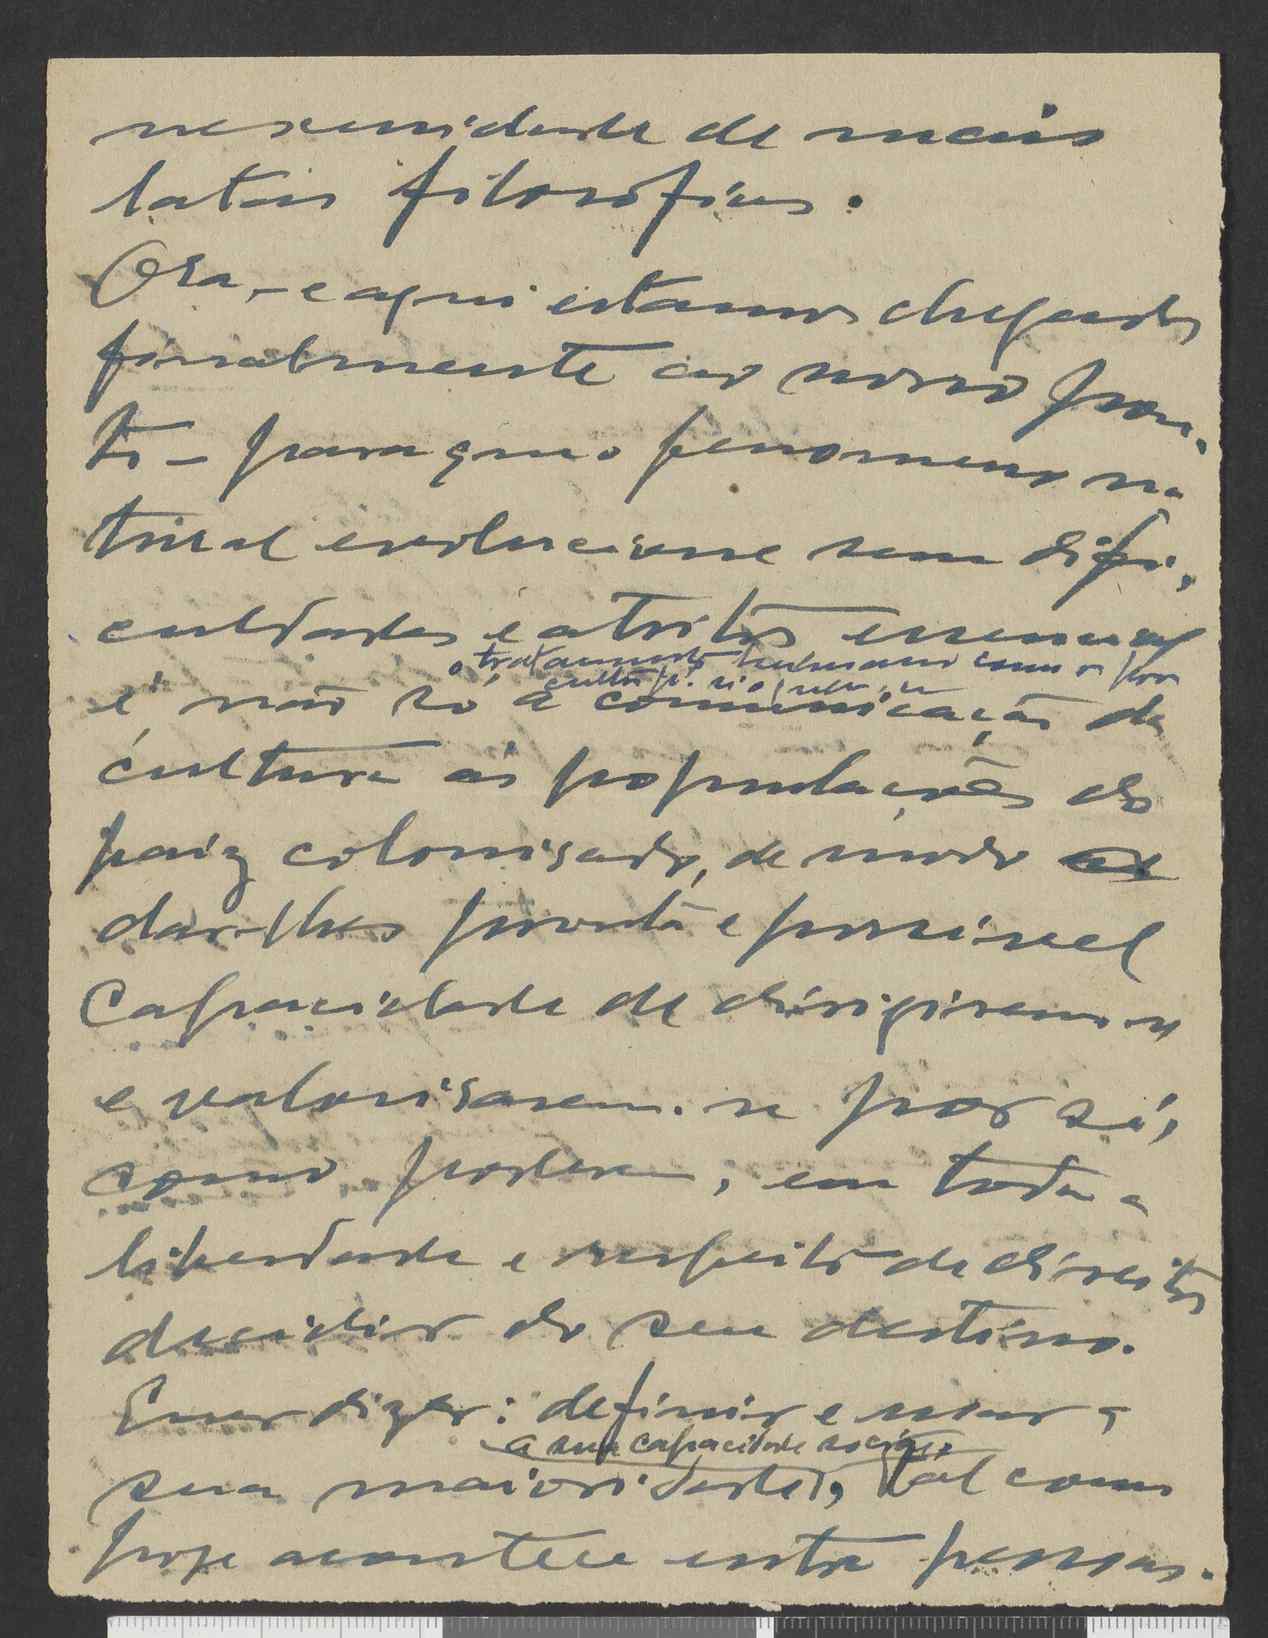 necessidade de mais
latas filosofias.
Ora, - e aqui estamos chegados
finalmente ao nosso pon-
to - para que o fenomeno na
tural evolucione sem difi-
culdades e atritos essencial
o tratamento humano como
é não só a comunicação da
cultura ás populações do
paiz colonisado, de modo
dar-lhes pronta e possivel
capacidade de dirigirem-se
e valorisarem-se por si,
como podem, em toda a
liberdade e respeito de direitos
decidir do seu destino.
Quer dizer: definir e usar a
a sua capacidade social
sua maioridade, tal como
hoje acontece entre pessoas.